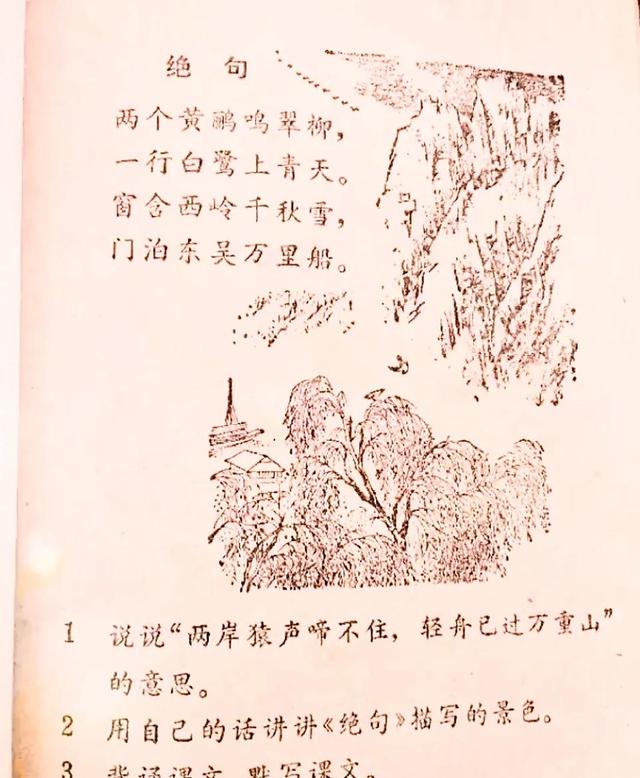 绝句
两个黄鹂鸣翠柳，
一行白鹭上青天。
窗含西岭千秋雪，
门泊东吴万里船。
1 说说“两岸猿声啼不住，轻舟已过万重山”
的意思。
2 用自己的话讲讲《绝句》描写的景色。
3 背诵课文，默写课文。